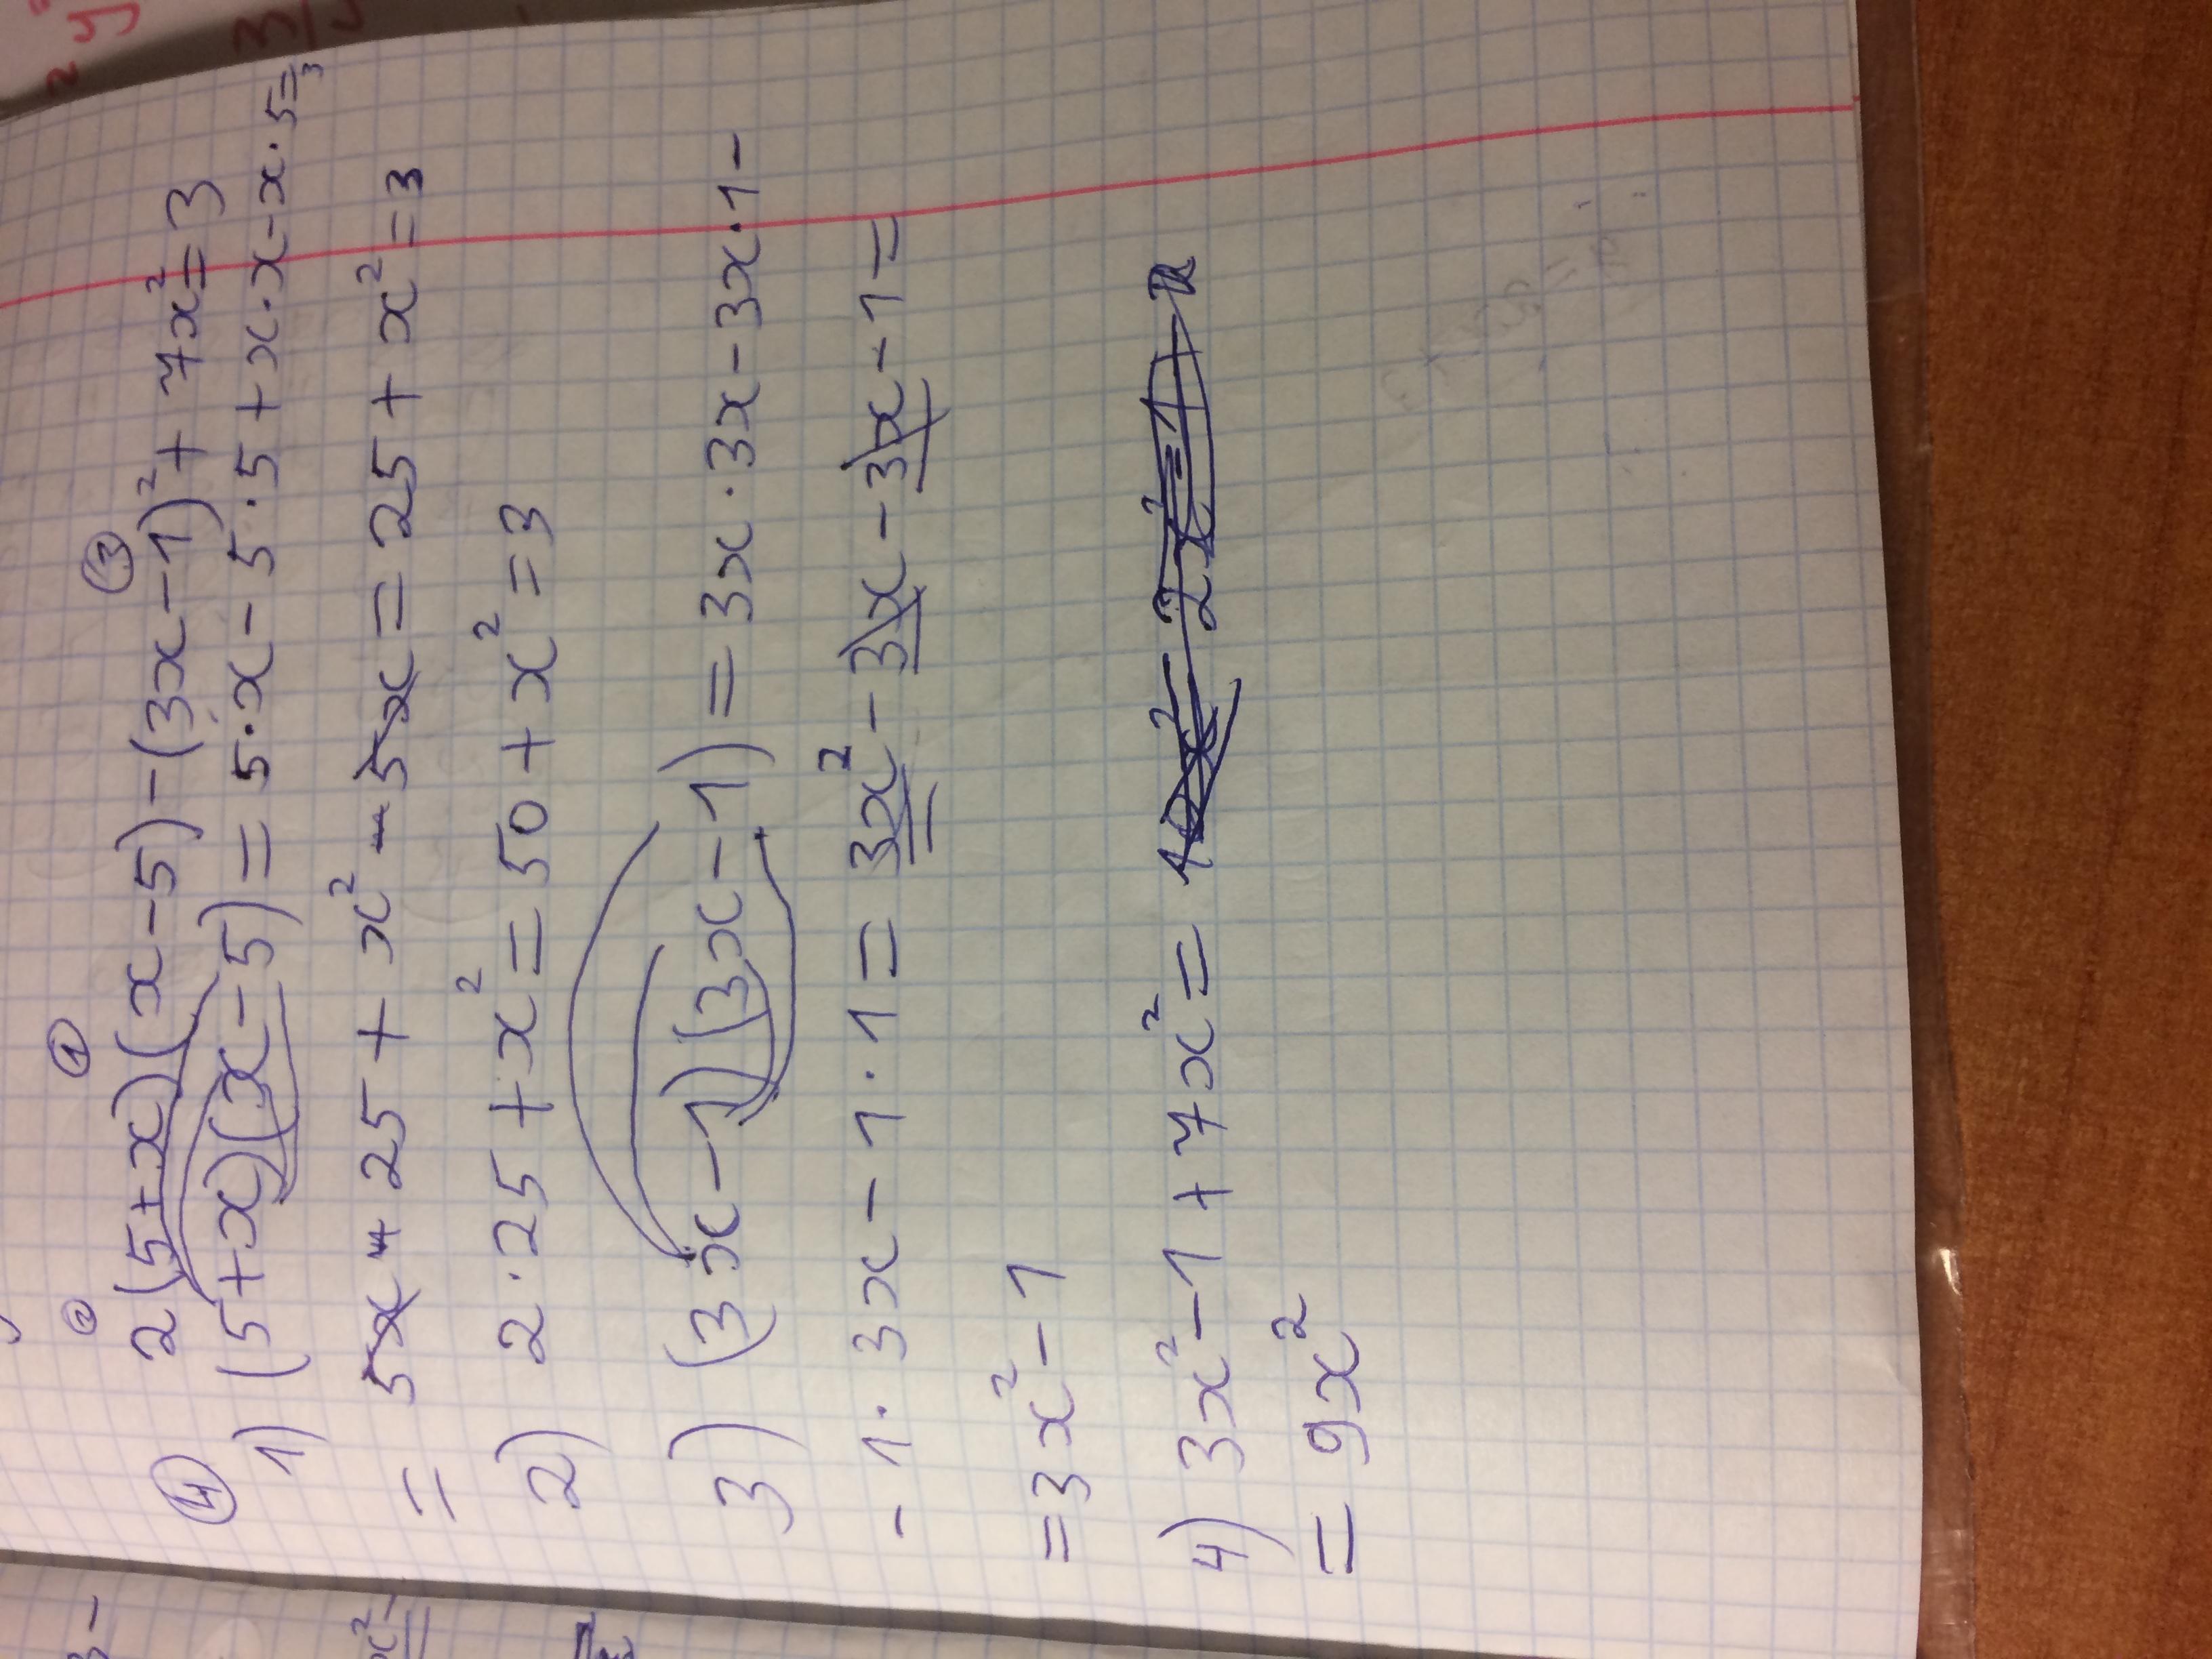 ② ① ③
④ 2(5+x)(x-5)-(3x-1)²+7x²=3
1) (5+x)(x-5)=5·x-5·5+x·x-x·5=3
= 5x+25+x²-5x=25+x²=3
2) 2·25+x²=50+x²=3
3) (3x-1)(3x-1)=3x·3x-3x·1-
-1·3x-1·1=3x²-3x-3x-1=
=3x²-1
4) 3x²-1+7x²=
=9x²